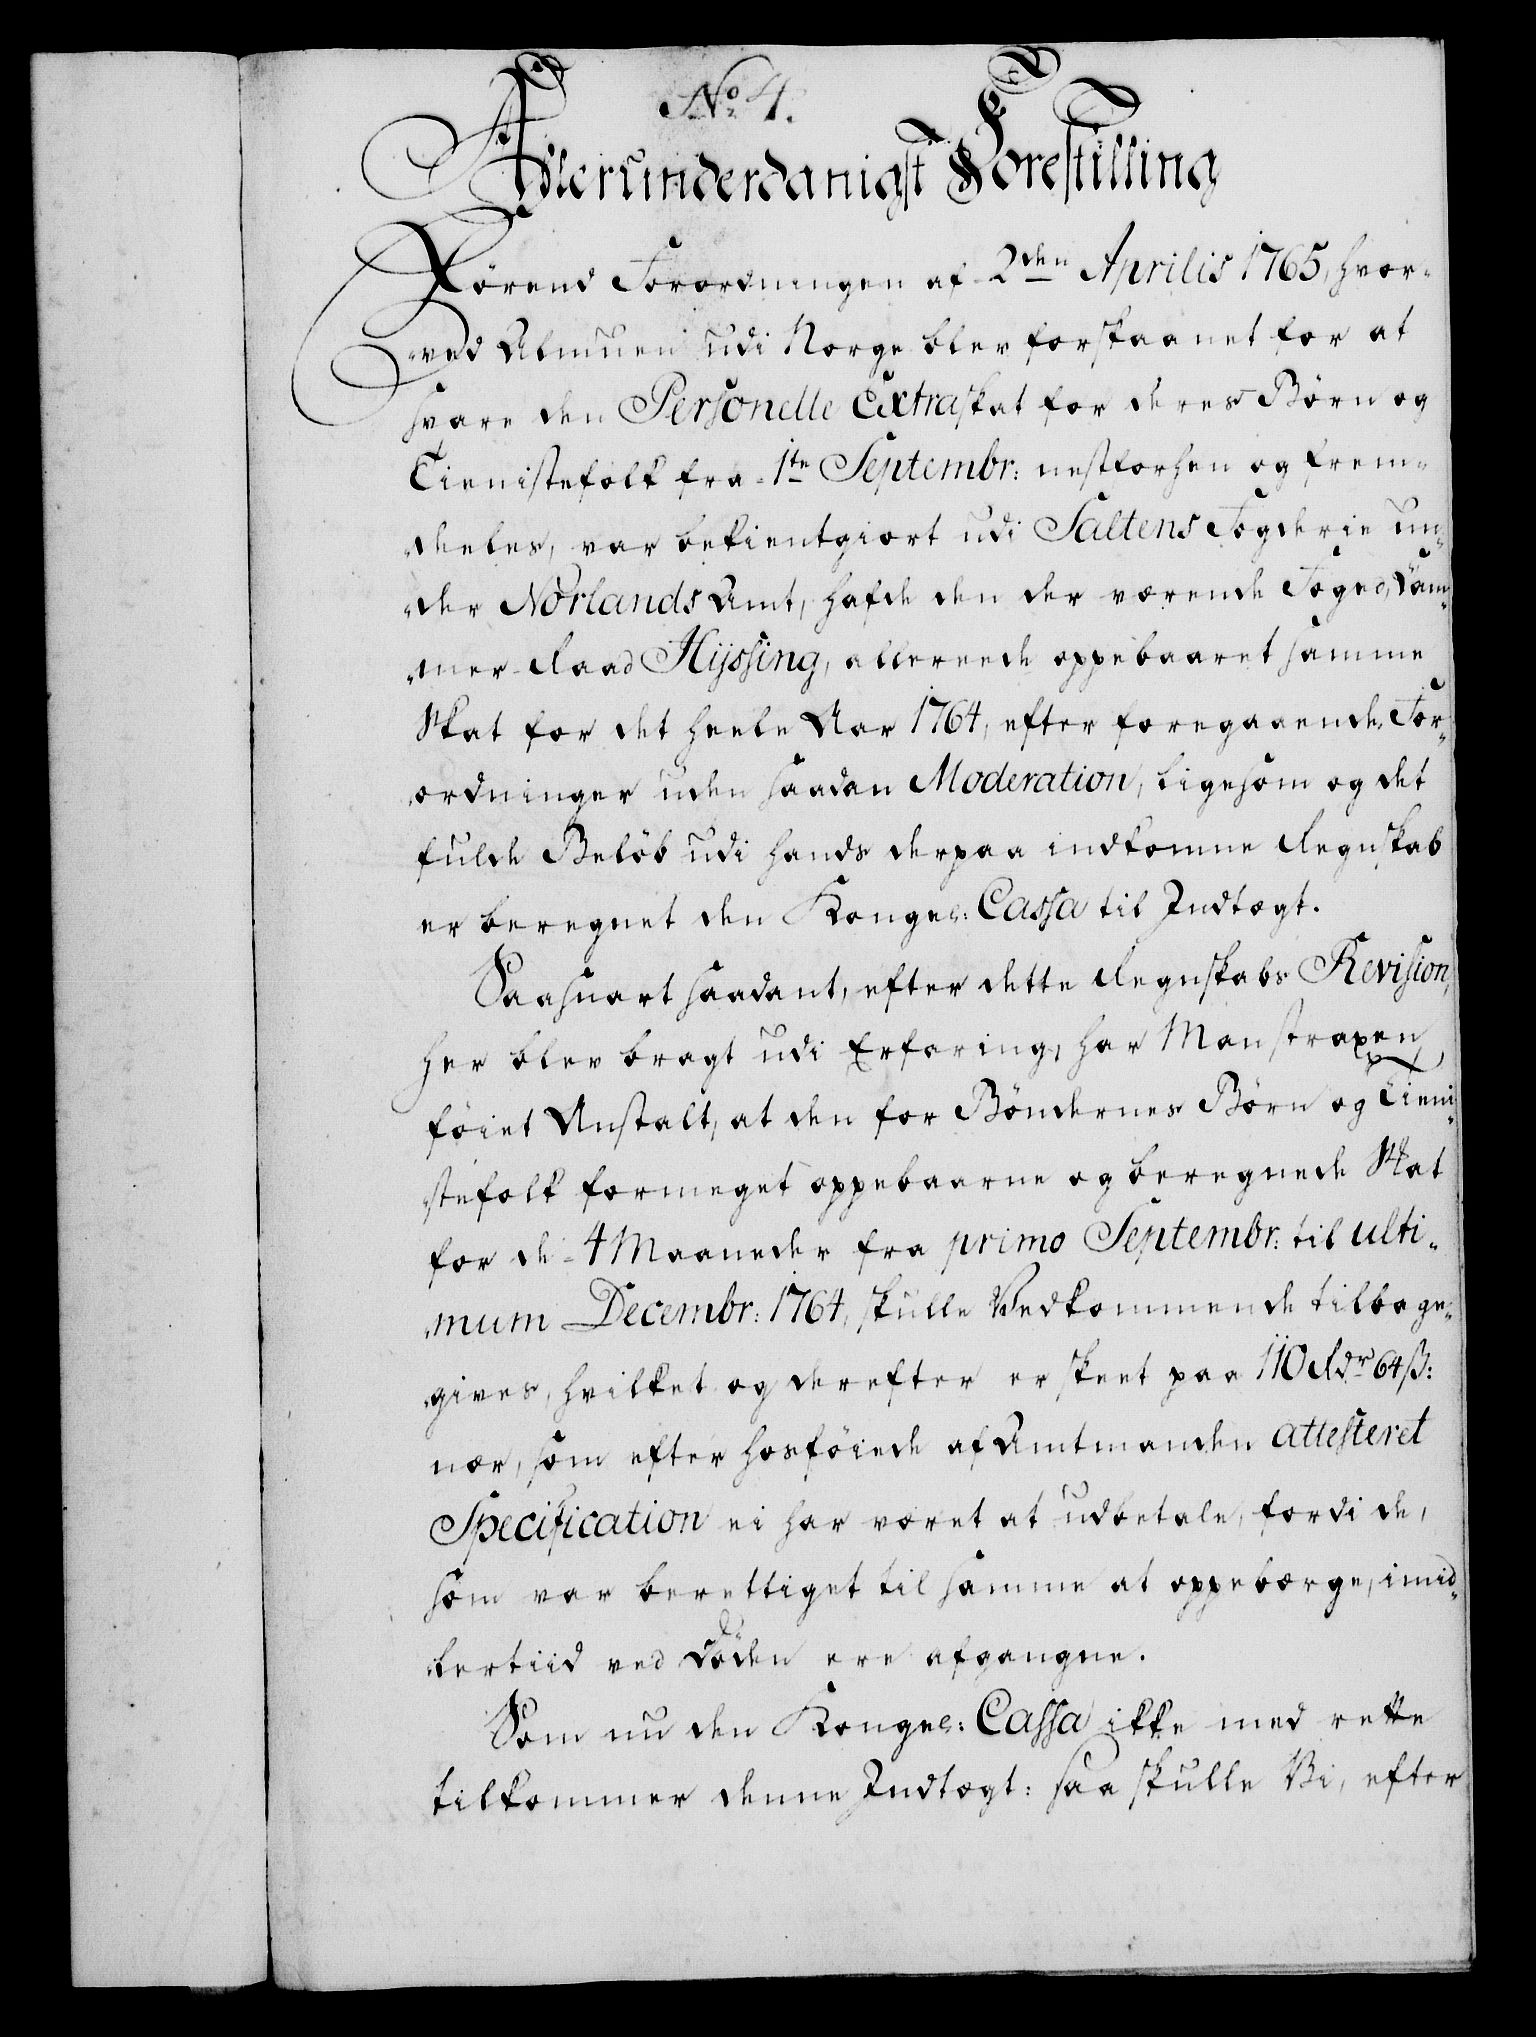 No. 4.
Allerunderdanigst Forestilling
Førend Forordningen af 2den Aprilis 1765, hvor-
ved Almuen udi Norge blev forskaanet for at
svare den Personelle Extraskat for deres Børn og
Tienistefolk fra 1te Septembr: nestforhen og frem-
deeles, var bekientgiort udi Saltens Fogderie un-
der Norlands Amt, hafde den der værende Foged, Cam-
mer-Raad Hÿssing, allereede oppebaaret samme
Skat for det heele Aar 1764, efter foregaaende For-
ordninger uden saadan Moderation, ligesom og det
fulde Beløb udi hands derpaa indkomne Regnskab
er beregnet den Kongel: Cassa til Indtægt.
Saasnart saadant, efter dette Regnskabs Revision,
her blev bragt udi Erfaring, har Man straxen
føiet Anstalt, at den for Bøndernes Børn og Tieni-
stefolk formeget oppebaarne og beregnede Skat
for de 4 Maaneder fra primo Septembr: til ulti-
mum Decembr: 1764, skulle Vedkommende tilbage-
gives, hvilket og derefter er skeet paa 110 Rdr 64 ß:
nær, som efter hosføiede af Amtmanden attesteret
Specification ei har været at udbetale, fordi de,
som var berettiget til samme at oppebærge, imid-
lertiid ved Døden ere afgangne.
Som nu den Kongel: Cassa ikke med rette
tilkommer denne Indtægt: saa skulle Vi, efter